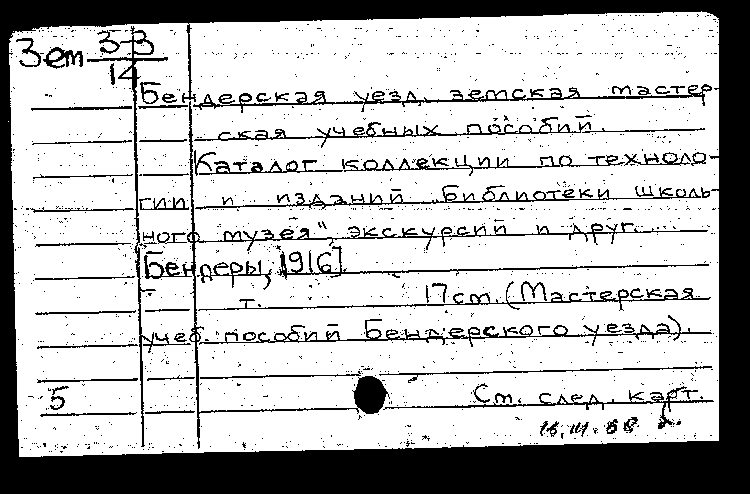 Зет 3-3
14
Бендерская уезд. земская мастер-
ская учебных пособий.
Каталог коллекции по техноло-
гии и изданий „Библиотеки школь-
ного музея", экскурсий и друг....
[Бендеры, 1916].
т. 17 см. (Мастерская
учеб. пособий Бендерского уезда).
5 См. след. карт.